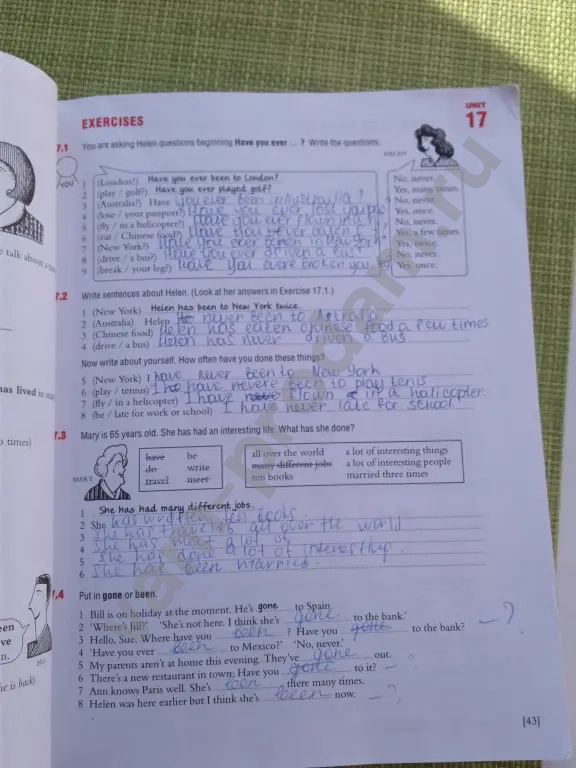 EXERCISES
UNIT
17
7.1 You are asking Helen questions beginning Have you ever ... ? Write the questions.
HELEN
YOU
1 (London?) Have you ever been to London? No, never.
2 (play / golf?) Have you ever played golf? Yes, many times.
3 (Australia?) Have you ever been in Australia? No, never.
4 (lose / your passport?) Have you ever lost your Yes, once.
5 (fly / in a helicopter?) Have you ever flown in No, never.
6 (eat / Chinese food?) Have you never eaten Yes, a few times.
7 (New York?) Have you ever in New York Yes, twice.
8 (drive / a bus?) Have you ever driven a bus No, never.
9 (break / your leg?) Have you evere broken you Yes, once.
e talk about a
7.2 Write sentences about Helen. (Look at her answers in Exercise 17.1.)
1 (New York) Helen has been to New York twice.
2 (Australia) Helen never been to Australia
3 (Chinese food) Helen has eaten Chinese food a few times
4 (drive / a bus) Helen has never driven a bus
Now write about yourself. How often have you done these things?
5 (New York) I have never been to New York
6 (play / tennis) I have nevere been to play tenis
7 (fly / in a helicopter) I have flown in a halicopter
8 (be / late for work or school) I have never late for school
has lived in
o times)
7.3 Mary is 65 years old. She has had an interesting life. What has she done?
MARY
have be
do write
travel meet
all over the world a lot of interesting things
many different jobs a lot of interesting people
ten books married three times
1 She has had many different jobs.
2 She has written ten books.
3 She has traveled all over the world
4 She has meet a lot of
5 She has done a lot of interesting
6 She has been married.
7.4 Put in gone or been.
1 Bill is on holiday at the moment. He's gone to Spain.
2 'Where's Jill?' 'She's not here. I think she's gone to the bank.'
3 Hello, Sue. Where have you been ? Have you gone to the bank? – ?
4 'Have you ever been to Mexico?' 'No, never.'
5 My parents aren't at home this evening. They've gone out.
6 There's a new restaurant in town. Have you gone to it? – ?
7 Ann knows Paris well. She's been there many times.
8 Helen was here earlier but I think she's been now. – ?
een
ve
n.
he is back)
[43]